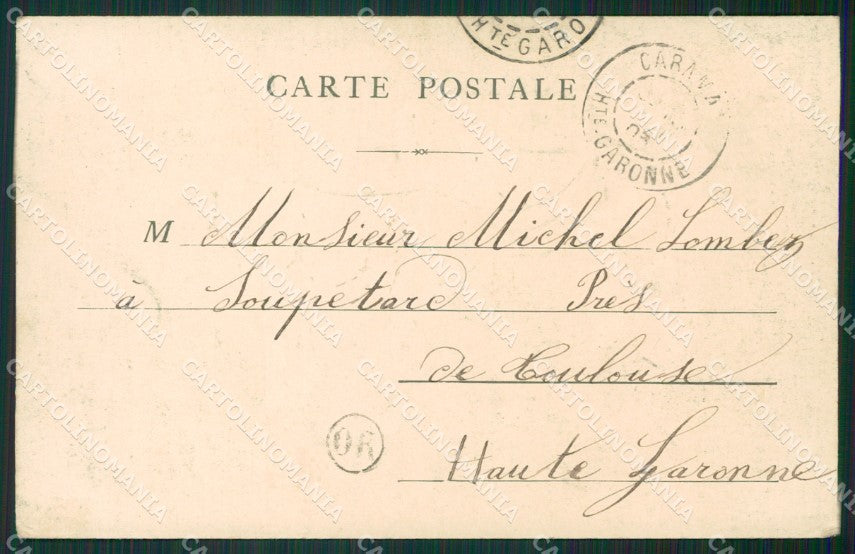 Hte GARO
CARAMA
HTE-GARONNE
CARTE POSTALE
M Monsieur Michel Lombez
à Soupetard Près
de Toulouse
OR
Haute Garonne
CARTOLINOMANIA